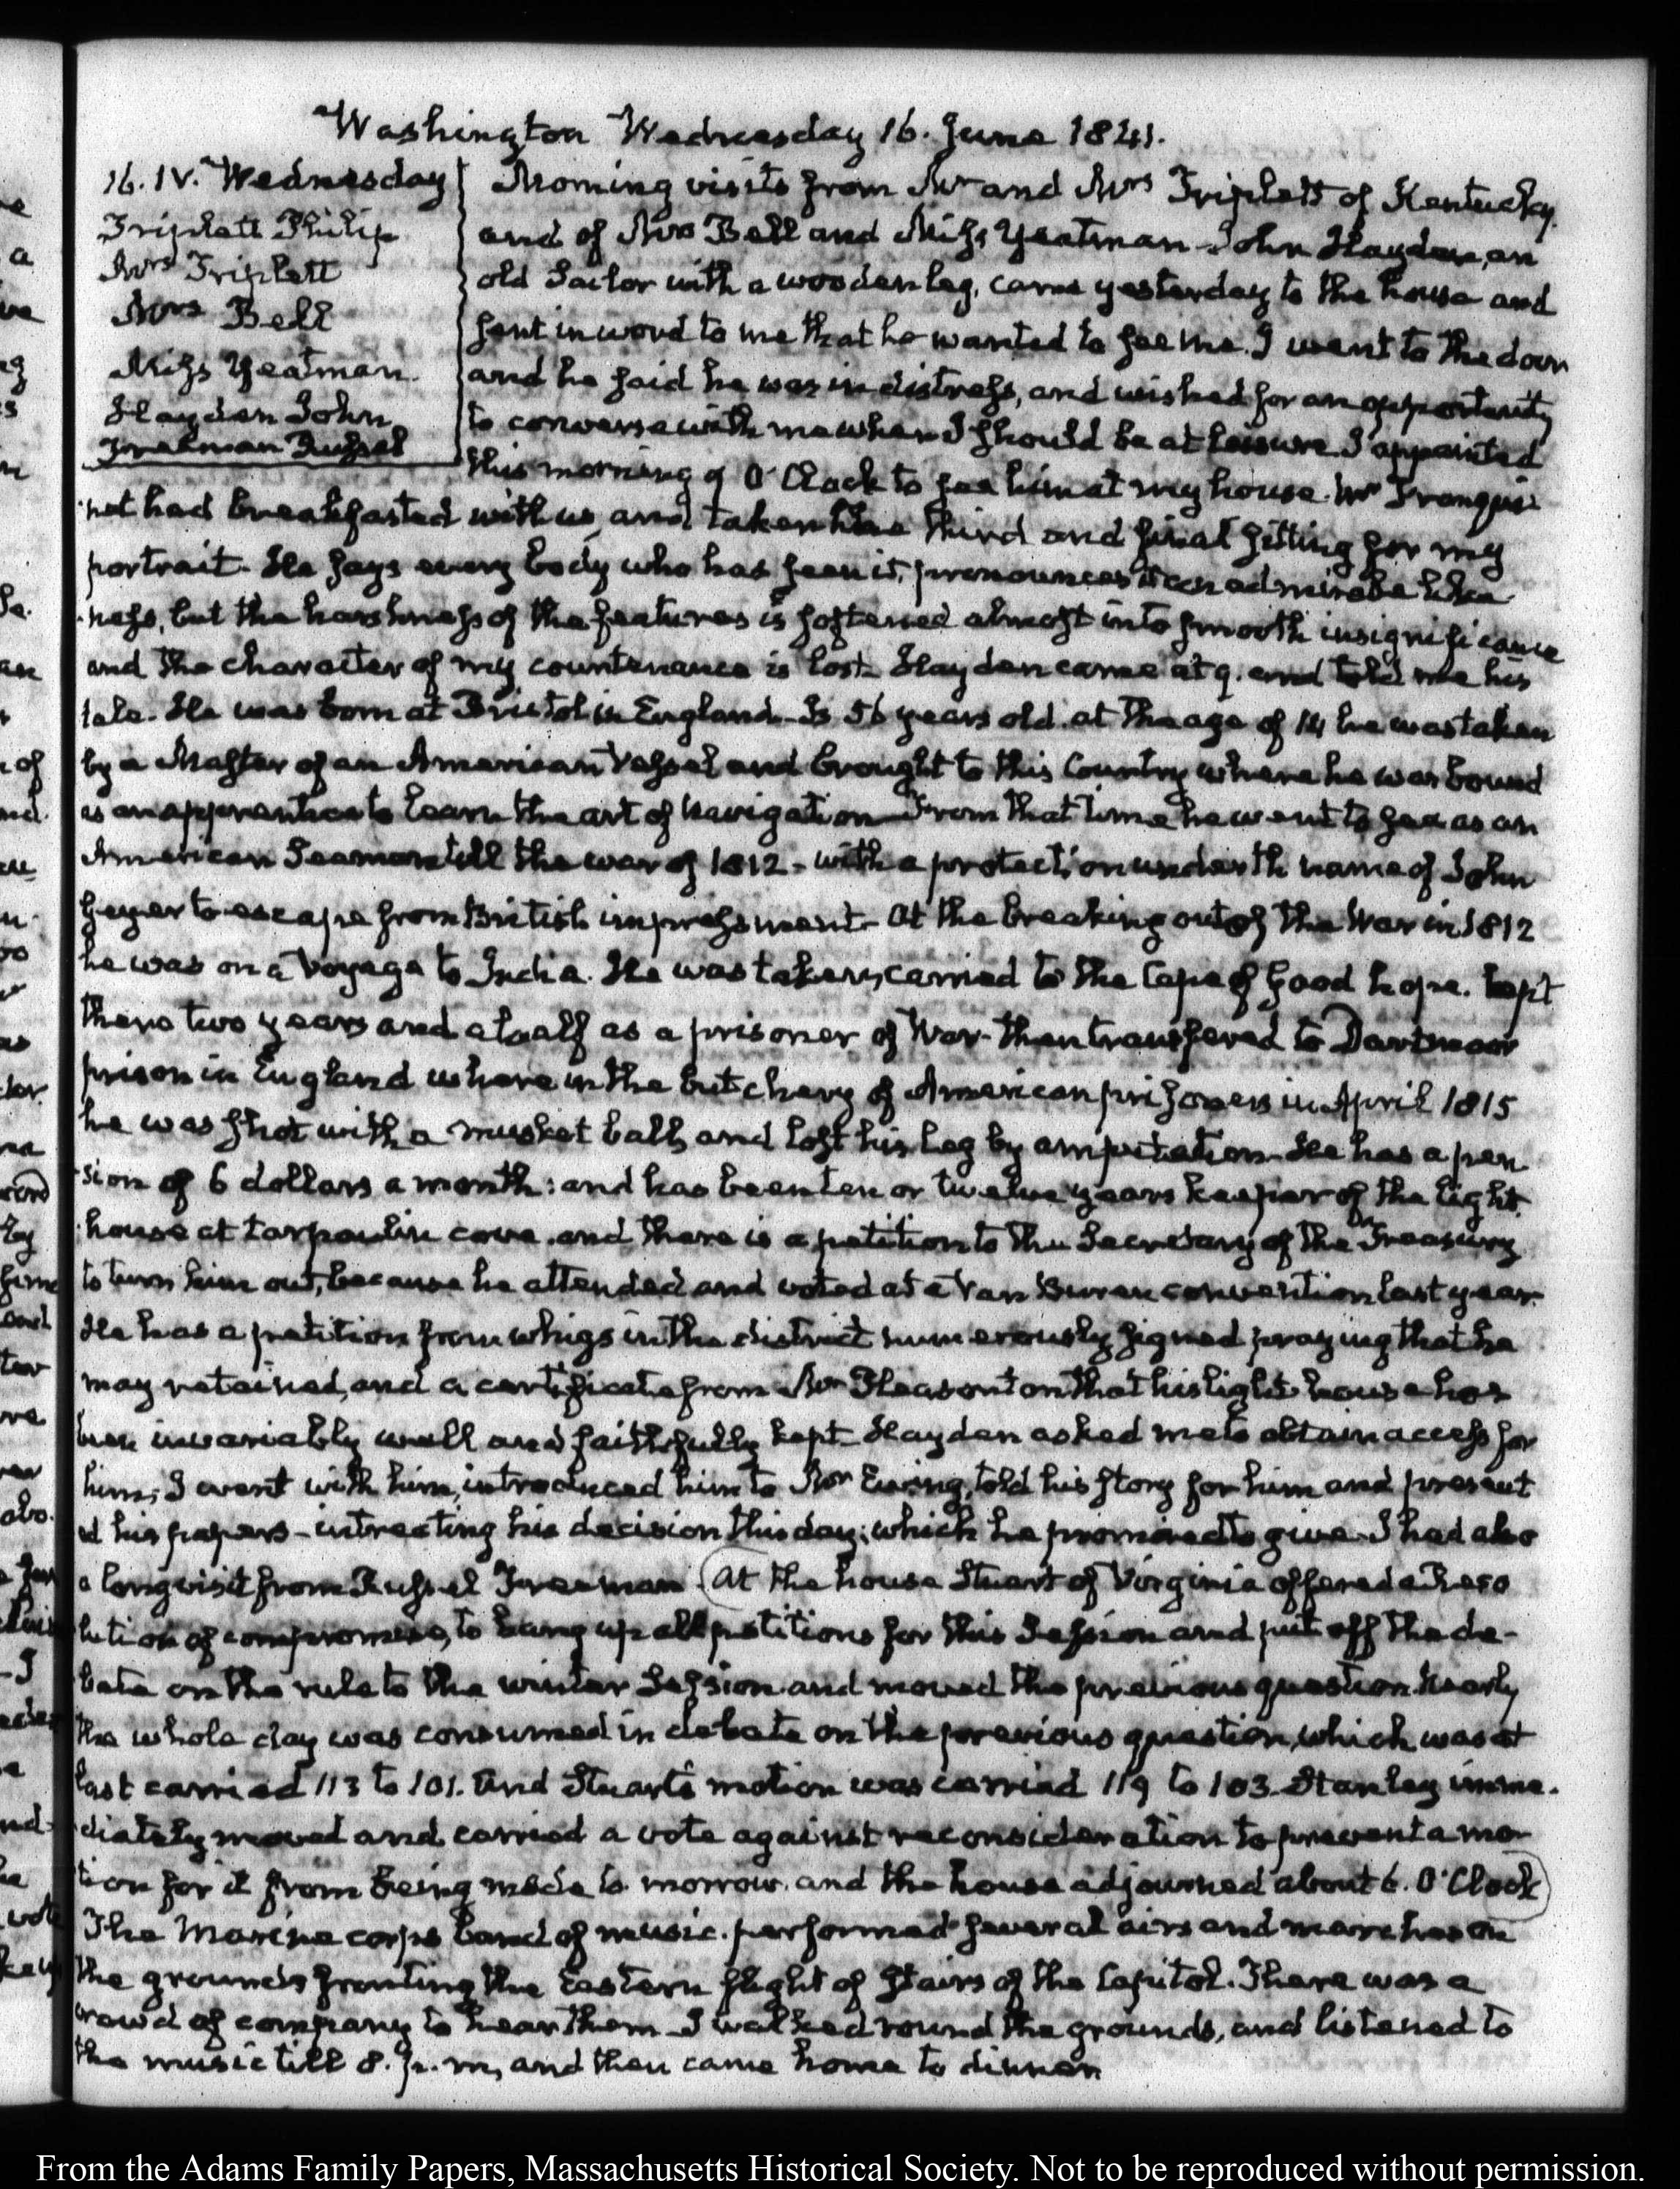 Washington Wednesday 16. June 1841.
16. IV. Wednesday
Triplett Philip
Mrs Triplett
Mrs Bell
Miss Yeatman.
Hayden John
Freeman Russel
Morning visits from Mr and Mrs Triplett of Kentucky
and of Mrs Bell and Miss Yeatman - John Hayden, an
old Sailor with a wooden leg, came yesterday to the house and
sent in word to me that he wanted to see me. I went to the door
and he said he was in distress, and wished for an opportunity
to converse with me when I should be at leisure. I appointed
this morning 9 O'Clock to see him at my house. Mr Franqui-
net had breakfasted with us, and taken the third and final sitting for my
portrait. He says every body who has seen it, pronounces it an admirable like-
ness, but the harshness of the features is softened almost into smooth insignificance
and the character of my countenance is lost. Hayden came at 9. and told me his
tale. He was born at Bristol in England - Is 56 years old. at the age of 14 he was taken
by a Master of an American Vessel and brought to this Country where he was bound
as an apprentice to learn the art of Navigation - From that time he went to sea as an
American Seaman till the war of 1812 - with a protection under th name of John
Geyer to escape from British impressment - At the breaking out of the War in 1812
he was on a Voyage to India. He was taken, carried to the Cape of Good hope. kept
there two years and a half as a prisoner of War - then transfered to Dartmoor
prison in England where in the butchery of American prisoners in April 1815
he was shot with a musket ball, and lost his leg by amputation - He has a pen
sion of 6 dollars a month: and has been ten or twelve years keeper of the light
house at tarpaulin cove. and there is a petition to the Secretary of the Treasury
to turn him out, because he attended and voted at a Van Buren convention last year.
He has a petition from whigs in the district numerously signed praying that he
may retained, and a certificate from Mr Pleasonton that his light-house has
been invariably well and faithfully kept - Hayden asked me to obtain access for
him; I went with him, introduced him to Mr Ewing, told his story for him and present
ed his papers - intreating his decision this day; which he promised to give. I had also
a long visit from Russel Freeman. (At the house Stuart of Virginia offered a Reso
lution of compromise, to hang up all petitions for this Session and put off the de-
bate on the rule to the winter Session and moved the previous question. Nearly
the whole day was consumed in debate on the previous question, which was at
last carried 113 to 101. And Stuart's motion was carried 119 to 103. Stanley imme-
diately moved and carried a vote against reconsideration to prevent a mo-
tion for it from being made to morrow. and the house adjourned about 6. O'Clock)
The Marine corps band of music. performed several airs and marches on
the grounds fronting the Eastern flight of stairs of the Capitol. There was a
crowd of company to hear them - I walked round the grounds, and listened to
the music till 8. p. m, and then came home to dinner
From the Adams Family Papers, Massachusetts Historical Society. Not to be reproduced without permission.